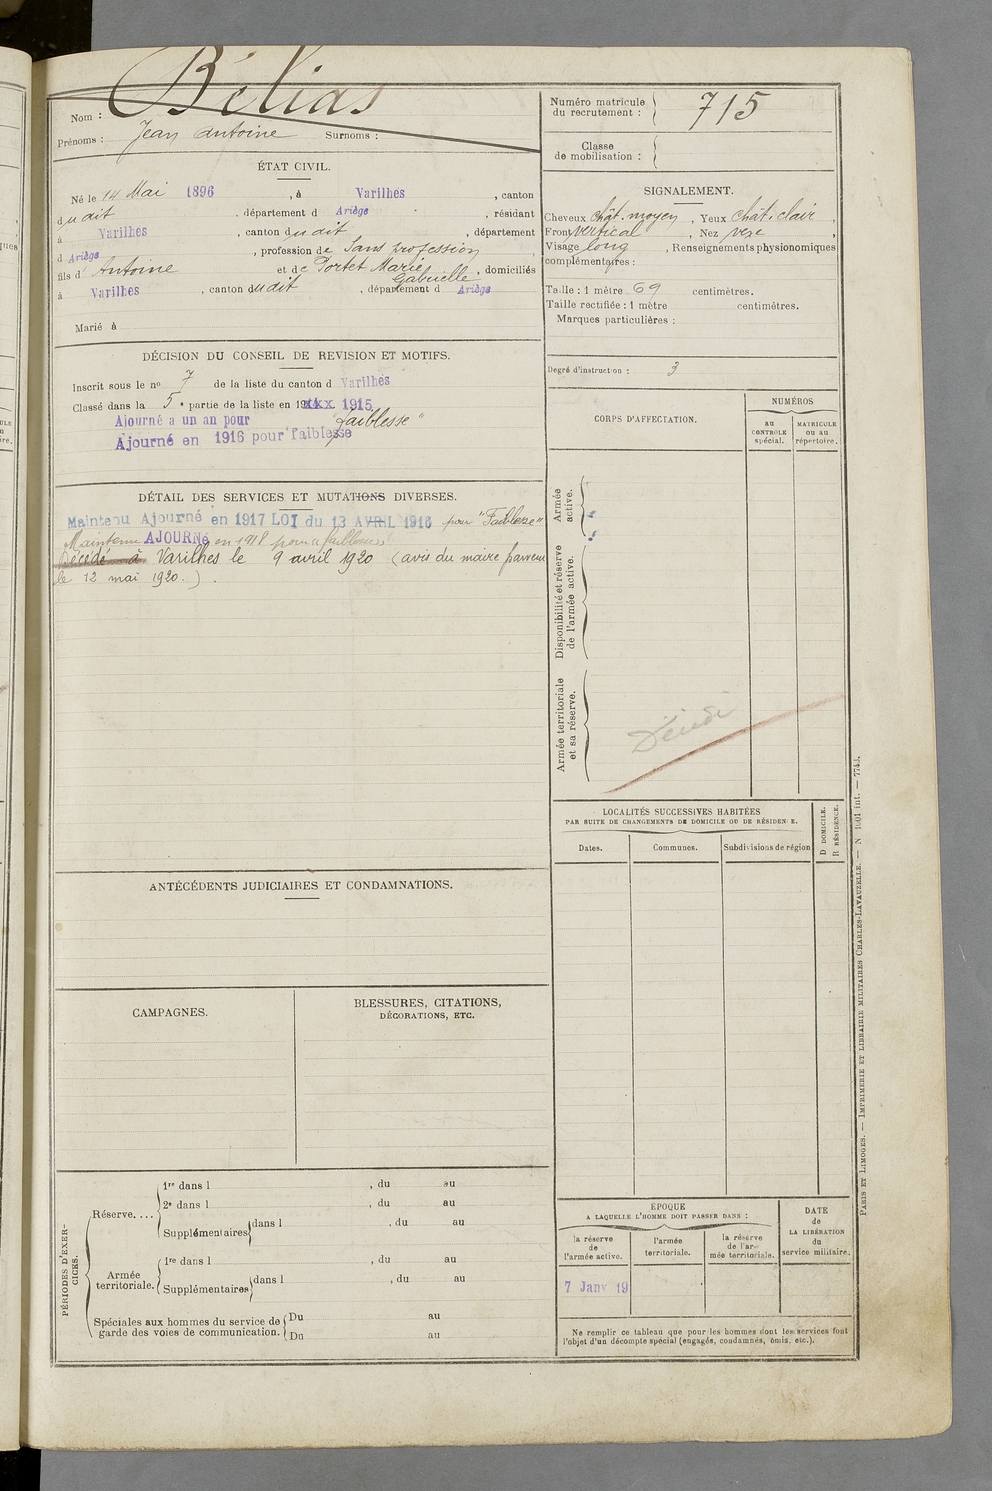 Nom : Bélias
Prénoms : Jean Antoine Surnoms :
Numéro matricule du recrutement : 715
Classe de mobilisation :
ÉTAT CIVIL.
Né le 14 Mai 1896, à Varilhes, canton
dudit, département d Ariège, résidant
à Varilhes, canton dudit, département
d Ariège, profession de Sans profession,
fils d'Antoine et de Portet Marie Gabrielle, domiciliés
à Varilhes, canton dudit, département d Ariège
Marié à
SIGNALEMENT.
Cheveux chât. moyen, Yeux chât. clair,
Front vertical, Nez
Visage long, Renseignements physionomiques
complémentaires :
Taille : 1 mètre 69 centimètres.
Taille rectifiée : 1 mètre centimètres.
Marques particulières :
Degré d'instruction : 3
DÉCISION DU CONSEIL DE REVISION ET MOTIFS.
Inscrit sous le nº 7 de la liste du canton d Varilhes
Classé dans la 5e partie de la liste en 19xxx 1915
Ajourné a un an pour "faiblesse"
Ajourné en 1916 pour faiblesse
DÉTAIL DES SERVICES ET MUTATIONS DIVERSES.
Maintenu Ajourné en 1917 LOI du 13 AVRIL 1916 pour "Faiblesse"
Maintenu AJOURNÉ en 1918 pour "faiblesse"
Décédé à Varilhes le 9 avril 1920 (avis du maire parvenu
le 12 mai 1920.).
CORPS D'AFFECTATION.
NUMÉROS
AU CONTROLE spécial.
MATRICULE ou au répertoire.
Armée active.
Disponibilité et réserve de l'armée active.
Armée territoriale et sa réserve.
Décédé
LOCALITÉS SUCCESSIVES HABITÉES
PAR SUITE DE CHANGEMENTS DE DOMICILE OU DE RÉSIDENCE.
Dates.
Communes.
Subdivisions de région
D DOMICILE.
R RÉSIDENCE.
ANTÉCÉDENTS JUDICIAIRES ET CONDAMNATIONS.
CAMPAGNES.
BLESSURES, CITATIONS,
DÉCORATIONS, ETC.
PÉRIODES D'EXERCICES.
Réserve....
1re dans l , du au
2e dans l , du au
Supplémentaires dans l , du au
Armée territoriale.
1re dans l , du au
Supplémentaires dans l , du au
Spéciales aux hommes du service de garde des voies de communication.
Du au
Du au
ÉPOQUE
A LAQUELLE L'HOMME DOIT PASSER DANS :
la réserve de l'armée active.
l'armée territoriale.
la réserve de l'armée territoriale.
DATE de LA LIBÉRATION du service militaire.
7 Janv 19
Ne remplir ce tableau que pour les hommes dont les services font
l'objet d'un décompte spécial (engagés, condamnés, omis, etc.).
PARIS ET LIMOGES. — IMPRIMERIE ET LIBRAIRIE MILITAIRES CHARLES-LAVAUZELLE. — N 1601 int. — 7743.